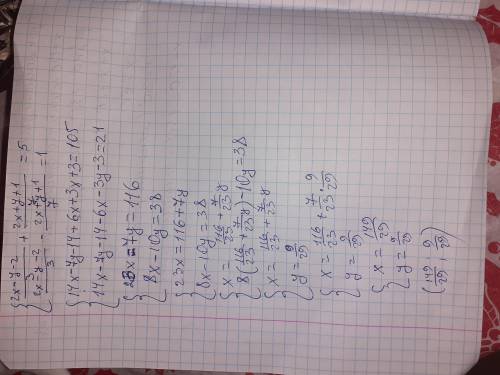 { (2x-y-2)/3 + (2x+y+1)/7 = 5
(2x-y-2)/3 - (2x+y+1)/7 = 1
{ 14x-7y-14+6x+3x+3=105
14x-7y-14-6x-3y-3=21
{ 23x-7y=116
8x-10y=38
{ 23x=116+7y
8x-10y=38
{ x = 116/23 + 7/23 y
8(116/23 + 7/23 y)-10y=38
{ x = 116/23 + 7/23 y
y = 9/29
{ x = 116/23 + 7/23 · 9/29
y = 9/29
{ x = 149/29
y = 9/29
(149/29 ; 9/29)